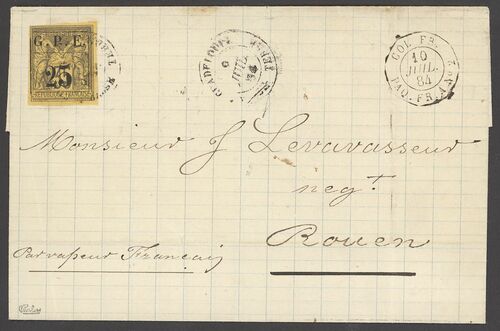 G. P. E.
25
REPUBLIQUE FRANCAISE
GUADELOUPE
6
JUIL
84
COL. FR.
10
JUIL.
84
PAQ. FR. A Nº2
Monsieur J Levavasseur
negt.
Rouen
Par vapeur Français